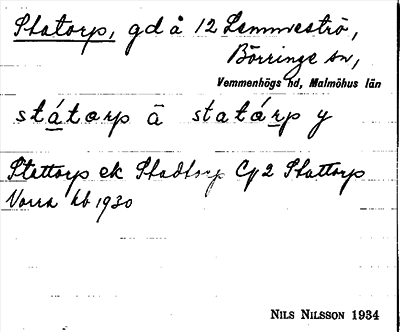 Statorp, gd å 12 Lemmeströ,
Börringe sn,
Vemmenhögs hd, Malmöhus län
státarp ā statárp y
Stattorp ek Stadtorp C/2 Stattorp
Vorra hb 1930
NILS NILSSON 1934